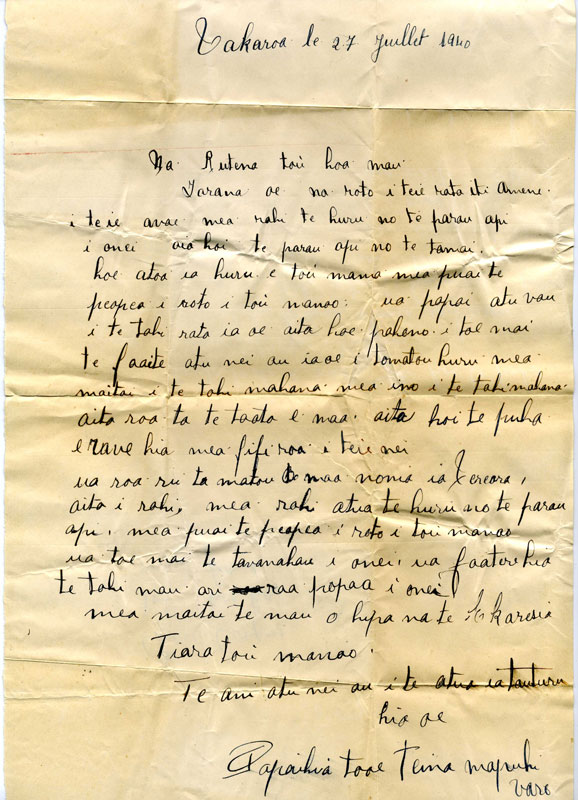 Takaroa le 27 Juillet 1940
Na Rutena toù hoa mau
Iarana oe na roto i teie rata iti amene.
i teie avae mea rahi te huru no te parau api
i onei oia hoi te parau api no te tamai.
hoe atoa ia huru e toù mama mea puai te
peapea i roto i toù manao. ua papai atu vau
i te tahi rata ia oe aita hoe pahono i tae mai
te faaite atu nei au ia oe i to matou huru mea
maitai i te tahi mahana mea ino i te tahi mahana
aita roa ta te taata e maa. aita hoi te puha
e rave hia mea fifi roa i teie nei
ua roa rii ta matou maa nonia ia Tereora,
aita i rahi, mea rahi atua te huru no te parau
api, mea puai te peapea i roto i toù manao
ua tae mai te tavanahau i onei, ua faatere hia
te tahi mau ari raa popaa i onei
mea maitai te mau ohipa na te Ekaresia
Tiara toù manao.
Te ani atu nei au i te atua ia tauturu
hia oe
Papaihia to oe Teina mapuhi
varo